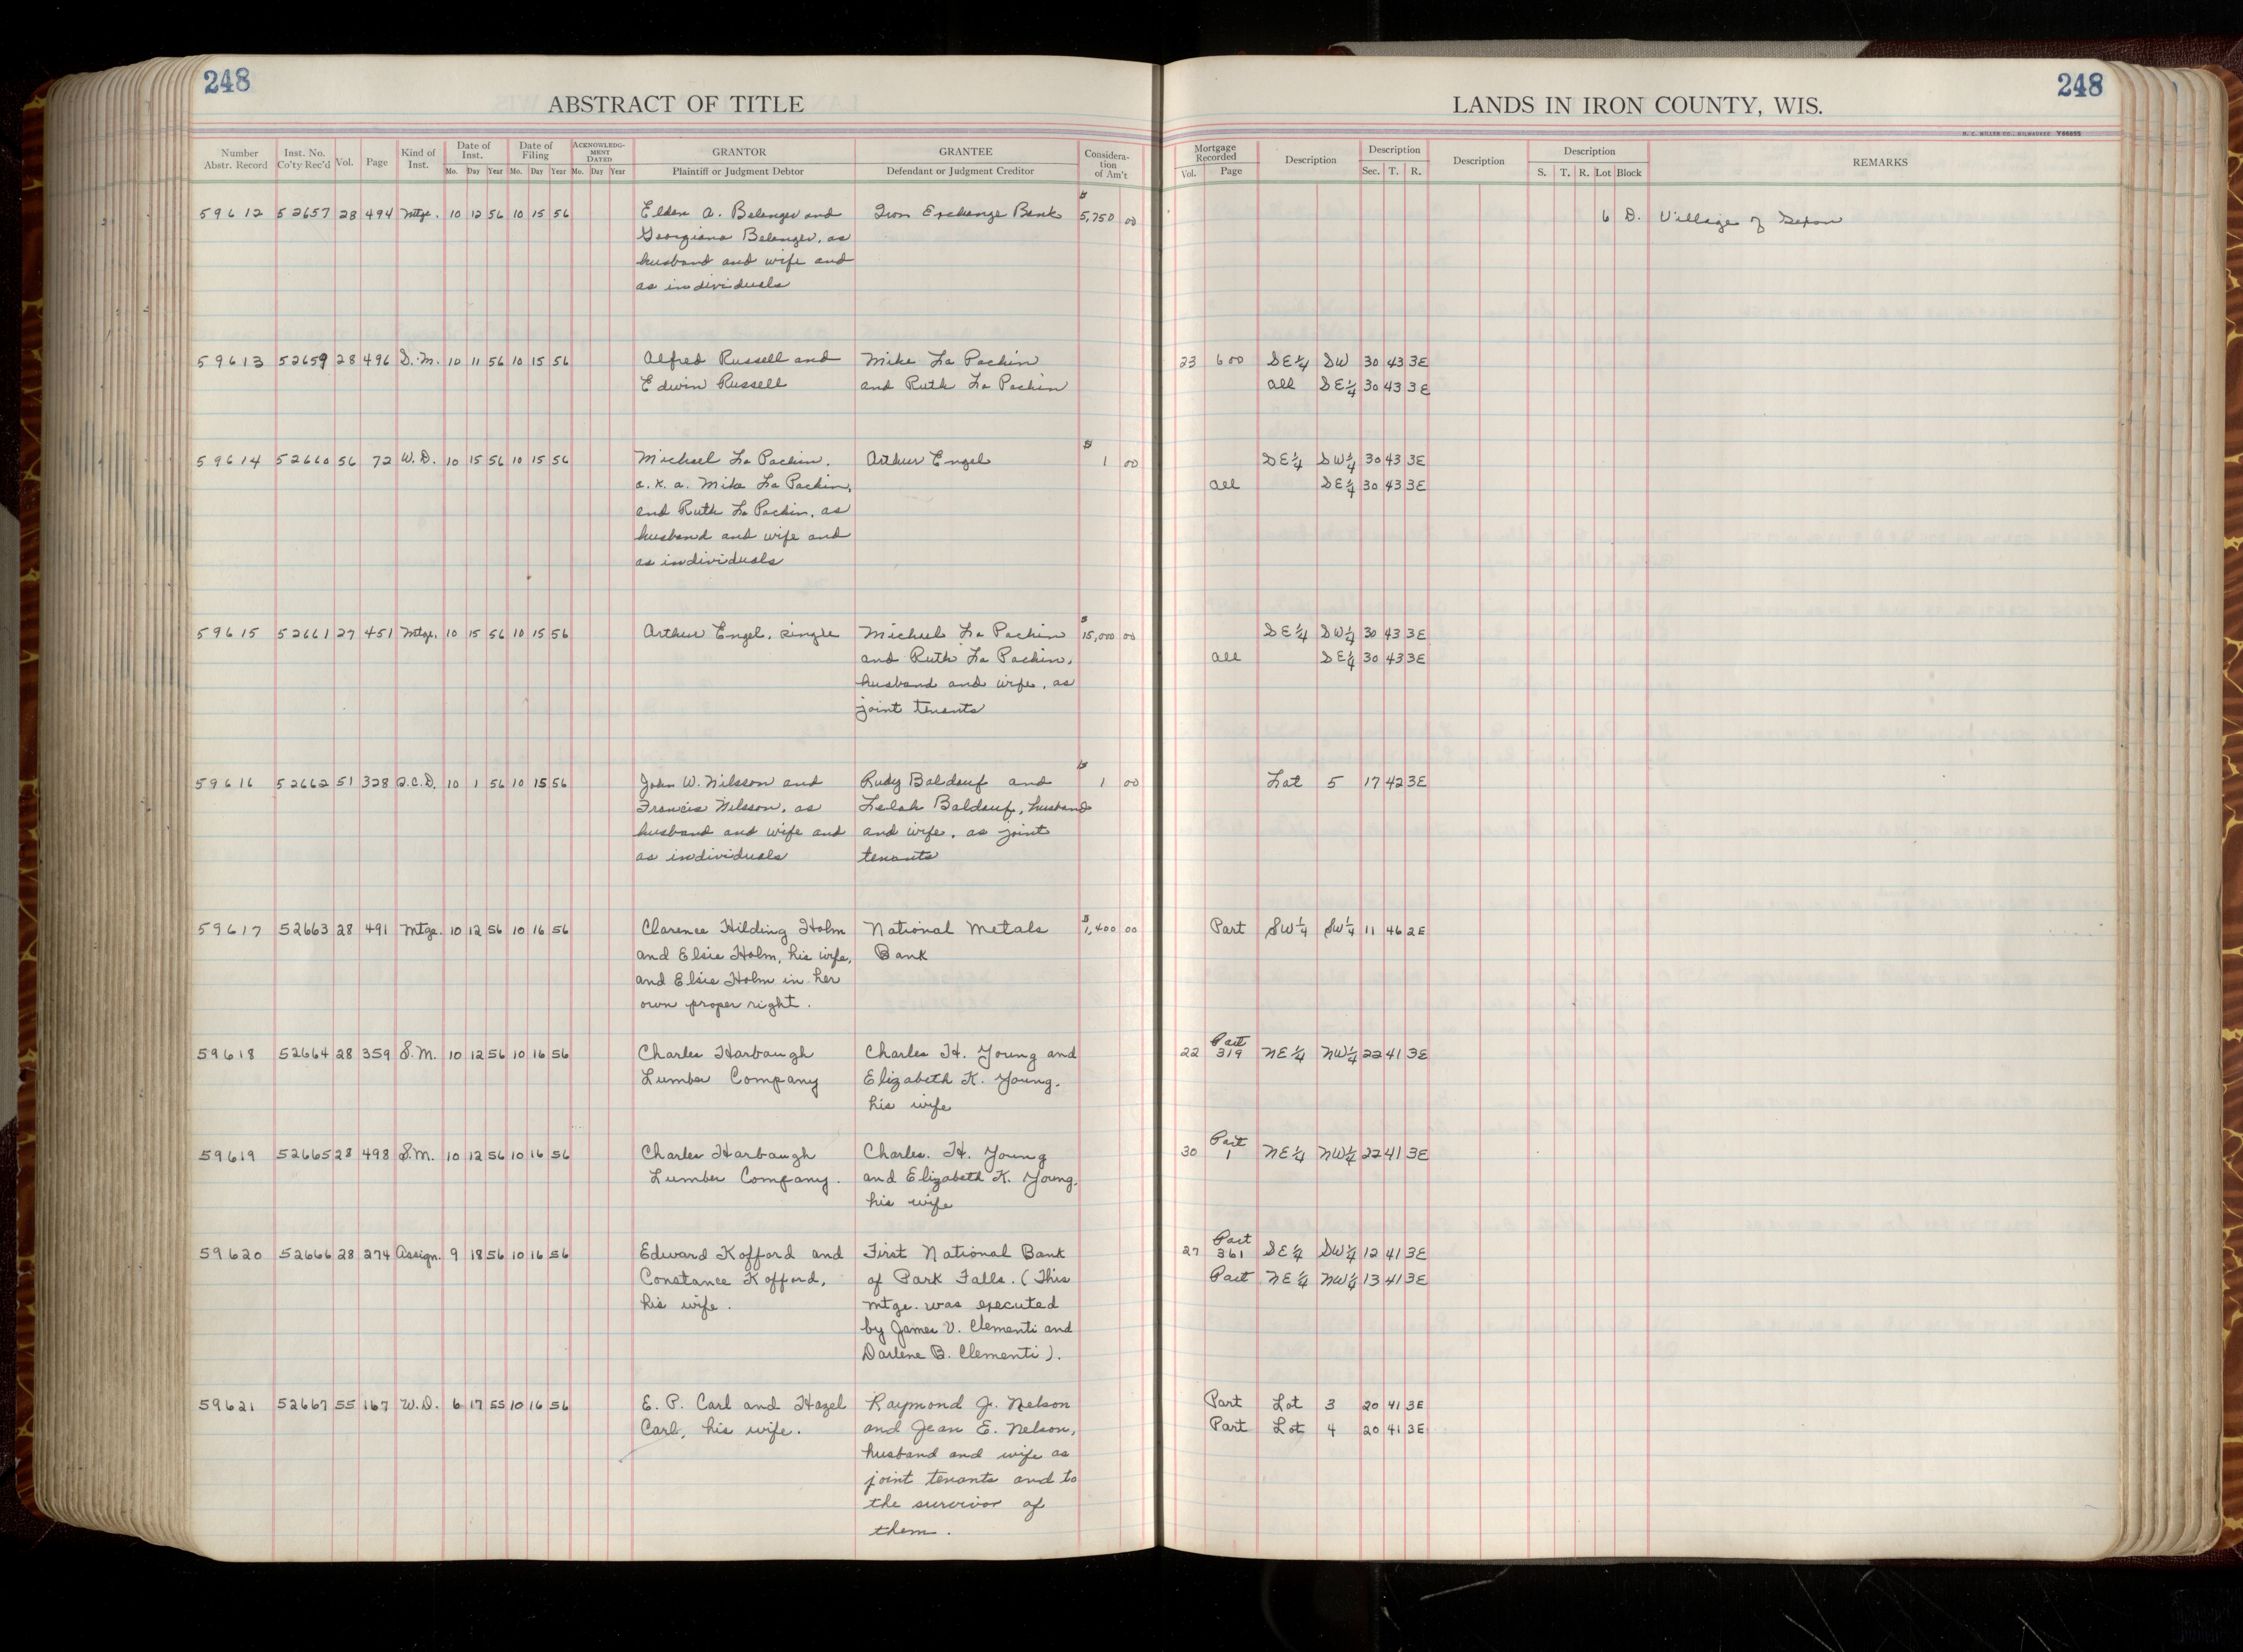 248
ABSTRACT OF TITLE
LANDS IN IRON COUNTY, WIS.
248
H. C. MILLER CO., MILWAUKEE Y66695
Number Abstr. Record Inst. No. Co'ty Rec'd Vol. Page Kind of Inst. Date of Inst. Mo. Day Year Date of Filing Mo. Day Year ACKNOWLEDGMENT DATED Mo. Day Year GRANTOR Plaintiff or Judgment Debtor GRANTEE Defendant or Judgment Creditor Consideration of Am't Mortgage Recorded Vol. Page Description Description Sec. T. R. Description Description S. T. R. Lot Block REMARKS
59612 52657 28 494 Mtge. 10 12 56 10 15 56 Elden A. Belanger and Iron Exchange Bank $5,750 00 6 D. Village of Saxon
Georgiana Belanger, as
husband and wife and
as individuals
59613 52659 28 496 S.M. 10 11 56 10 15 56 Alfred Russell and Mike La Pachin 23 600 SE¼ SW 30 43 3E
Edwin Russell and Ruth La Pachin all SE¼ 30 43 3E
59614 52660 56 72 W.D. 10 15 56 10 15 56 Michael La Pachin, Arthur Engel $1 00 SE¼ SW¼ 30 43 3E
a.k.a. Mike La Pachin, all SE¼ 30 43 3E
and Ruth La Pachin, as
husband and wife and
as individuals
59615 52661 27 451 Mtge. 10 15 56 10 15 56 Arthur Engel, single Michael La Pachin $15,000 00 SE¼ SW¼ 30 43 3E
and Ruth La Pachin, all SE¼ 30 43 3E
husband and wife, as
joint tenants
59616 52662 51 328 Q.C.D. 10 1 56 10 15 56 John W. Nilsson and Rudy Baldauf and $1 00 Lot 5 17 42 3E
Francis Nilsson, as Lelah Baldauf, husband
husband and wife and and wife, as joint
as individuals tenants
59617 52663 28 491 Mtge. 10 12 56 10 16 56 Clarence Hilding Holm National Metals $1,400 00 Part SW¼ SW¼ 11 46 2E
and Elsie Holm, his wife, Bank
and Elsie Holm in her
own proper right.
59618 52664 28 359 S.M. 10 12 56 10 16 56 Charles Harbaugh Charles H. Young and 22 Part 319 NE¼ NW¼ 22 41 3E
Lumber Company Elizabeth K. Young,
his wife
59619 52665 28 498 S.M. 10 12 56 10 16 56 Charles Harbaugh Charles. H. Young 30 Part 1 NE¼ NW¼ 22 41 3E
Lumber Company. and Elizabeth K. Young,
his wife
59620 52666 28 274 Assign. 9 18 56 10 16 56 Edward Kofford and First National Bank 27 Part 361 SE¼ SW¼ 12 41 3E
Constance Kofford, of Park Falls. (This Part NE¼ NW¼ 13 41 3E
his wife. mtge. was executed
by James V. Clementi and
Darlene B. Clementi).
59621 52667 55 167 W.D. 6 17 55 10 16 56 E. P. Carl and Hazel Raymond J. Nelson Part Lot 3 20 41 3E
Carl, his wife. and Jean E. Nelson, Part Lot 4 20 41 3E
husband and wife as
joint tenants and to
the survivor of
them.